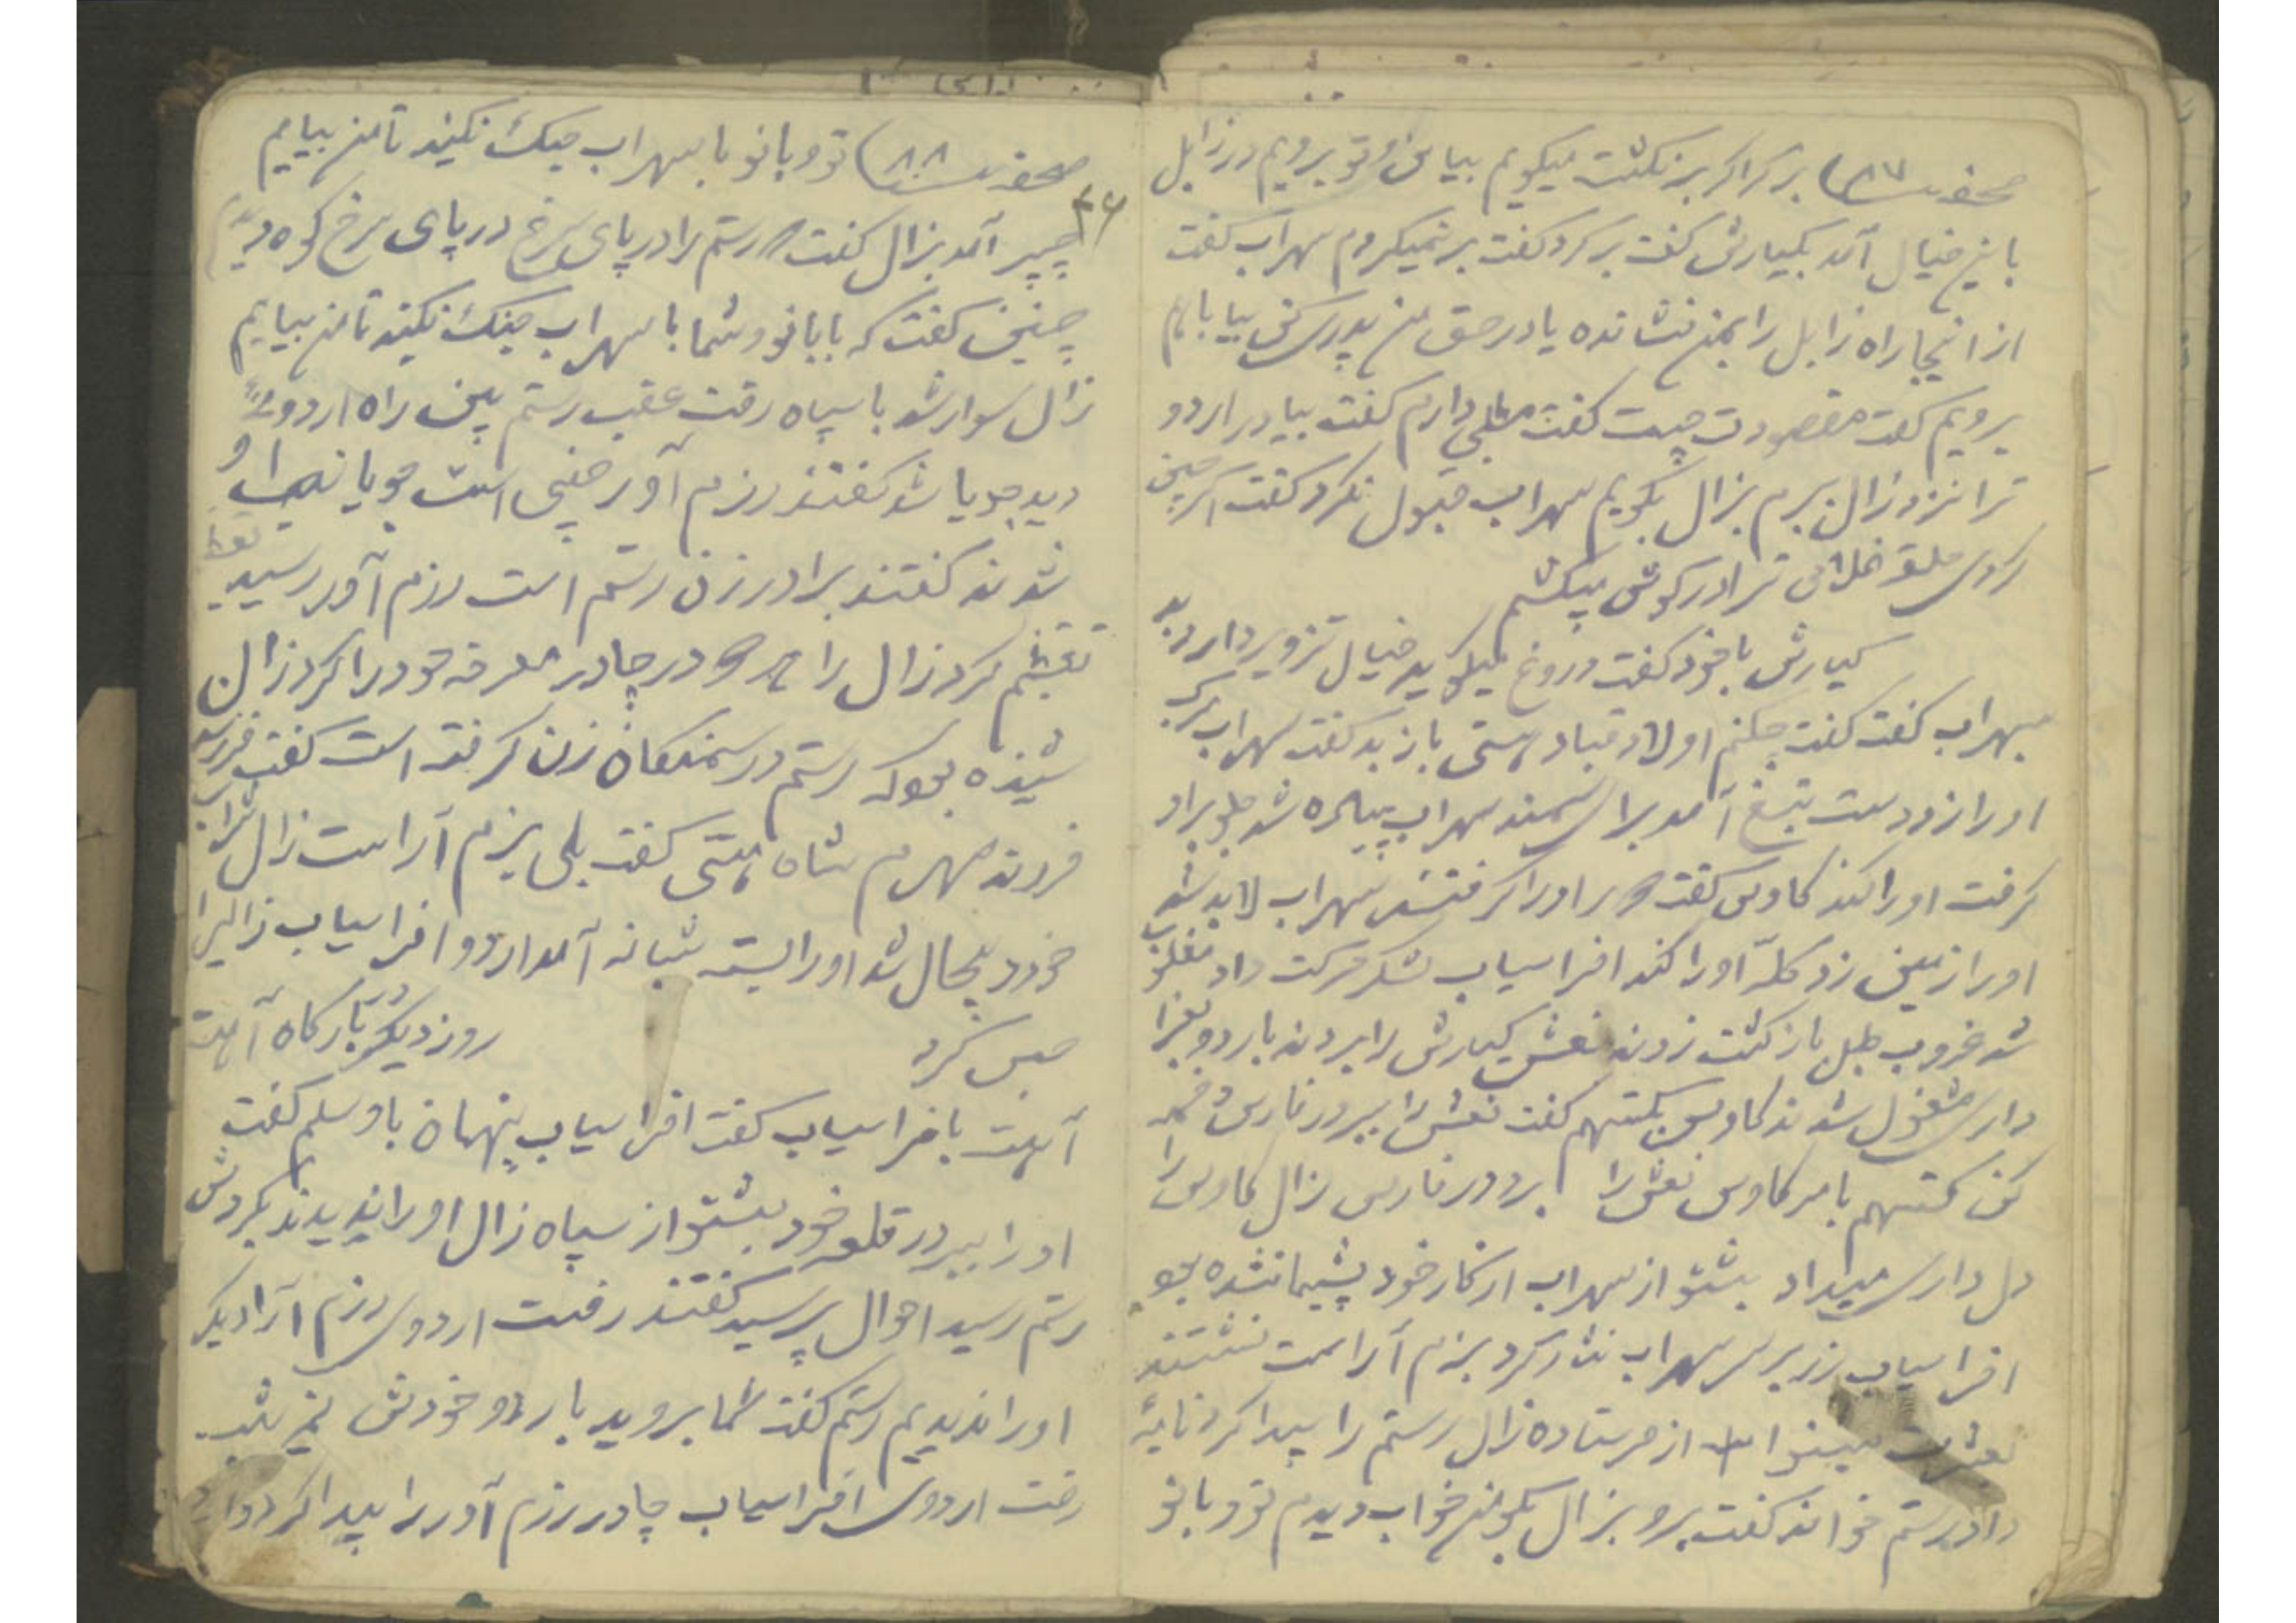 صحفه ۸۷) برکرا کر برنکشت میکویم بیا من و تو برویم در زابل
باین خیال آمد بکیارش کفت برکرد کفت برنمیکردم سهراب کفت
از اینجا راه زابل را بمن نشانده یا در حق من پدری کن بیا باهم
برویم کفت مقصودت چیست کفت مطلبی دارم کفت بیا در اردو
ترا نزد زال برم بزال بکویم سهراب قبول نکرد کفت اکر چنین
کردی حلقه غلامی ترا در کوش میکشم
کیارش با خود کفت دروغ میکوید خیال تزویر دارد بد
بسهراب کفت کفت چکنم اولاد قباد هستی باز بد کفت سهراب
او را زد دست بتیغ آمد برا سمند سهراب پیاده شد جلو براد
کرفت او را کند کاوس کفت او را کرفتند سهراب لابد شد
او را زمین زد کلّه او را کند افراسیاب لشکر حرکت داد مغلوبه
شد غروب طبل بازکشت زدند نعش کیارش را بردند باردو بعزا
داری مشغول شدند کاوس بکستهم کفت نعش را ببر در فارس دخمه
کن کستهم بامر کاوس نعش را برد در فارس زال کاوس را
دل داری میداد بشنو از سهراب از کار خود پشیمان شده بود
افراسیاب زر بر سر سهراب نثار کرد بزم آراست نشستند
بعشرت بشنو از فرستاده زال رستم را پیدا کرد نامه
داد رستم خواند کفت برو بزال بکو من خواب دیدم تو و بانو
صحفه ۸۸) تو و بانو با سهراب جنک نکنید تا من بیایم
۴۶
چپر آمد بزال کفت رستم را در پای سرخ در پای سرخ کوه دیدم
چنین کفت که با بانو و شما با سهراب جنک نکنید تا من بیایم
زال سوار شد با سپاه رفت عقب رستم بین راه اردوئی
دید جویا شد کفتند رزم آور ختنی است جویا نسب او
شدند کفتند برادر زن رستم است رزم آور رسید
تعظیم کرد زال را برد در چادر معرفه خود را کرد زال
شنیده بود که رستم در سمنکان زن کرفته است کفت فرزند
فرزند سهرم شاه هستی کفت بلی بزم آراست زال شراب
خورد بیحال شد او را بسته شبانه آمد اردو افراسیاب زال را
حبس کرد روز دیکر در بارکاه آهت
آهت بافراسیاب کفت افراسیاب پنهان باو سلم کفت
او را ببر در قلعه خود بشنو از سپاه زال او را ندیدند بکردش
رستم رسید احوال پرسید کفتند رفت اردوی رزم آرا دیکر
او را ندیدیم رستم کفت شما بروید باردو خودش نیم شب
رفت اردوی افراسیاب چادر رزم آور را پیدا کرد